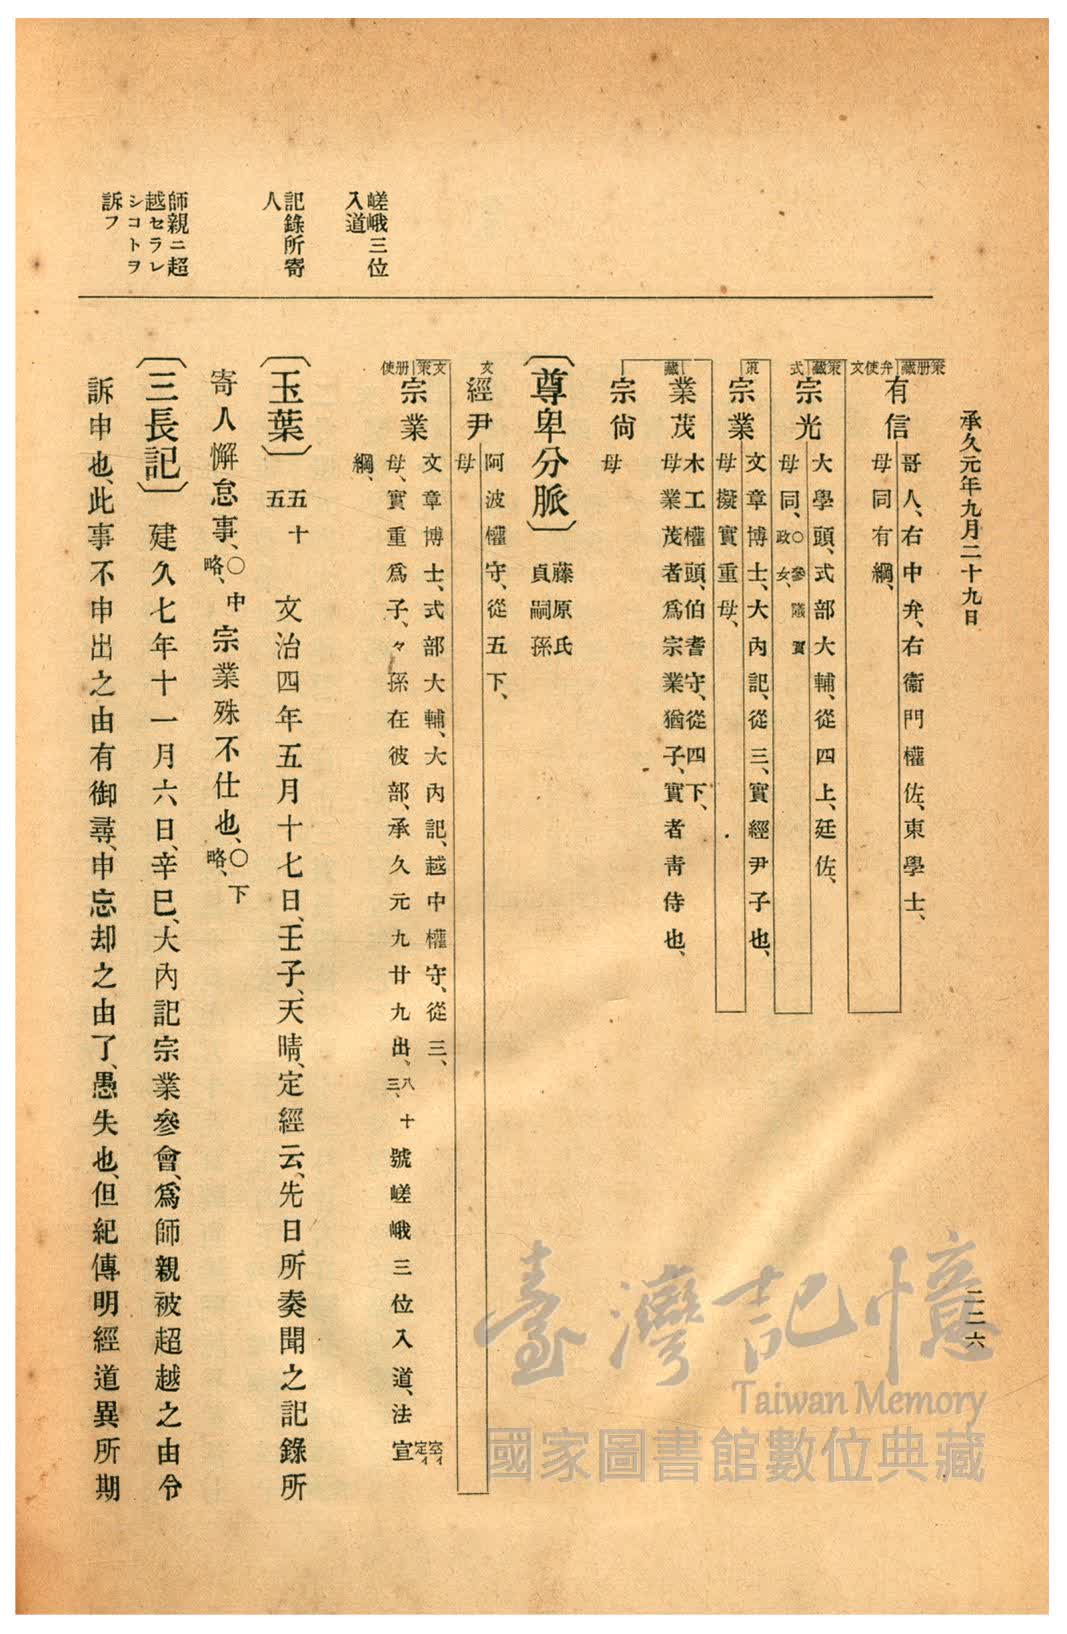 承久元年九月二十九日
二二六
策册藏弁使文
有信
哥人、右中弁、右衞門權佐、東學士、
母同有綱、
策藏式
宗光
大學頭、式部大輔、從四上、廷佐、
母同、○參議實政女、
策
宗業
文章博士、大內記、從三、實經尹子也、
母擬實重母、
藏
業茂
木工權頭、伯耆守、從四下、
母業茂者爲宗業猶子、實者靑侍也、
宗尙
母
〔尊卑分脈〕藤原氏貞嗣孫
文
經尹
阿波權守、從五下、
母
文策册使
宗業
文章博士、式部大輔、大內記、越中權守、從三、
母、實重爲子、々孫在彼部、承久元九廿九出、八十三、號嵯峨三位入道、法宣窓イ定イ
綱、
嵯峨三位入道
記錄所寄人
〔玉葉〕五十五 文治四年五月十七日、壬子、天晴、定經云、先日所奏聞之記錄所
寄人懈怠事、○中略、宗業殊不仕也、○下略、
師親ニ超越セラレシコトヲ訴フ
〔三長記〕建久七年十一月六日、辛巳、大內記宗業參會、爲師親被超越之由令
訴申也、此事不申出之由有御尋、申忘却之由了、愚失也、但紀傳明經道異所期
臺灣記憶
Taiwan Memory
國家圖書館數位典藏